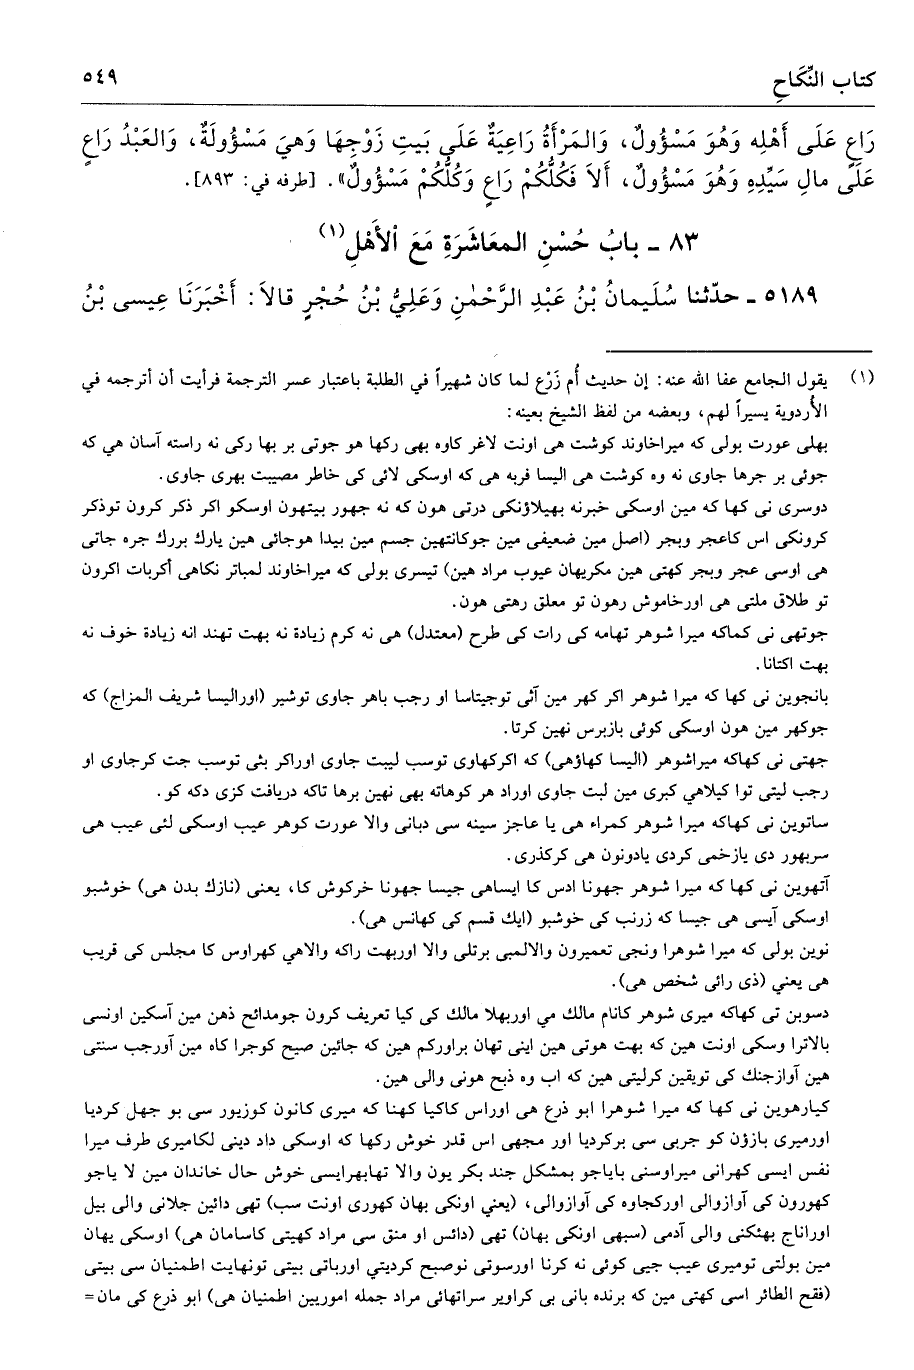 كتاب النِّكَاحِ ٥٤٩
رَاعٍ عَلَى أَهْلِه وَهُوَ مَسْؤُولٌ، وَالمَرْأَةُ رَاعِيَةٌ عَلَى بَيتِ زَوْجِهَا وَهيَ مَسْؤُولَةٌ، وَالعَبْدُ رَاعٍ
عَلَى مالِ سَيِّدِهِ وَهُوَ مَسْؤُولٌ، أَلاَ فَكُلُّكُمْ رَاعٍ وَكُلُّكُمْ مَسْؤُولٌ». [طرفه في: ٨٩٣].
٨٣ ـ بابُ حُسْنِ المعَاشَرَةِ مَعَ الأَهْلِ(١)
٥١٨٩ ـ حدّثنا سُلَيمانُ بْنُ عَبْدِ الرَّحْمٰنِ وَعَلِيُّ بْنُ حُجْرٍ قالاَ: أَخْبَرَنَا عِيسى بْنُ
(١) يقول الجامع عفا الله عنه: إن حديث أُم زَرْع لما كان شهيراً في الطلبة باعتبار عسر الترجمة فرأيت أن أترجمه في
الأُردوية يسيراً لهم، وبعضه من لفظ الشيخ بعينه:
بهلى عورت بولى كه ميراخاوند كوشت هى اونت لاغر كاوه بهى ركها هو جوتى بر بها ركى نه راسته آسان هي كه
جوئى بر جرها جاوى نه وه كوشت هى اليسا فربه هى كه اوسكى لائى كى خاطر مصيبت بهرى جاوى.
دوسرى نى كها كه مين اوسكى خبرنه بهيلاؤنكى درتى هون كه نه جهور بيتهون اوسكو اكر ذكر كرون توذكر
كرونكى اس كاعجر وبجر (اصل مين ضعيفى مين جوكانتهين جسم مين بيدا هوجائى هين يارك بررك جره جاتى
هى اوسى عجر وبجر كهتى هين مكريهان عيوب مراد هين) تيسرى بولى كه ميراخاوند لمباتر نكاهى أكربات اكرون
تو طلاق ملتى هى اورخاموش رهون تو معلق رهتى هون.
جوتهى نى كماكه ميرا شوهر تهامه كى رات كى طرح (معتدل) هى نه كرم زيادة نه بهت تهند انه زيادة خوف نه
بهت اكتانا.
بانجوين نى كها كه ميرا شوهر اكر كهر مين آئى توجيتاسا او رجب باهر جاوى توشير (اوراليسا شريف المزاج) كه
جوكهر مين هون اوسكى كوئى بازبرس نهين كرتا.
جهتى نى كهاكه ميراشوهر (اليسا كهاؤهى) كه اكركهاوى توسب ليبت جاوى اوراكر بئى توسب جت كرجاوى او
رجب ليتى توا كيلاهي كبرى مين لبت جاوى اوراد هر كوهاته بهى نهين برها تاكه دريافت كزى دكه كو.
ساتوين نى كهاكه ميرا شوهر كمراء هى يا عاجز سينه سى دبانى والا عورت كوهر عيب اوسكى لئى عيب هى
سربهور دى يازخمى كردى يادونون هى كركذرى.
آتهوين نى كها كه ميرا شوهر جهونا ادس كا ايساهى جيسا جهونا خركوش كا، يعنى (نازك بدن هى) خوشبو
اوسكى آيسى هى جيسا كه زرنب كى خوشبو (ايك قسم كى كهانس هى).
نوين بولى كه ميرا شوهرا ونجى تعميرون والالمبى برتلى والا اوربهت راكه والاهي كهراوس كا مجلس كى قريب
هى يعني (ذى رائى شخص هى).
دسوين تى كهاكه ميرى شوهر كانام مالك مي اوربهلا مالك كى كيا تعريف كرون جومدائح ذهن مين آسكين اونسى
بالاترا وسكى اونت هين كه بهت هوتى هين اينى تهان براوركم هين كه جائين صبح كوجرا كاه مين آورجب سنتى
هين آوازجنك كى تويقين كرليتى هين كه اب وه ذبح هونى والى هين.
كيارهوين نى كها كه ميرا شوهرا ابو ذرع هى اوراس كاكيا كهنا كه ميرى كانون كوزيور سى بو جهل كرديا
اورميرى بازؤن كو جربى سى بركرديا اور مجهى اس قدر خوش ركها كه اوسكى داد دينى لكاميرى طرف ميرا
نفس ايسى كهرانى ميراوسنى باياجو بمشكل جند بكر يون والا تهابهرايسى خوش حال خاندان مين لا ياجو
كهورون كى آوازوالى اوركجاوه كى آوازوالى، (يعني اونكى بهان كهورى اونت سب) تهى دائين جلانى والى بيل
اوراناج بهتكنى والى آدمى (سبهى اونكى بهان) تهى (دائس او منق سى مراد كهيتى كاسامان هى) اوسكى يهان
مين بولتى توميرى عيب جيى كوئى نه كرنا اورسوتى نوصبح كرديتي اورباتى بيتى تونهايت اطمنيان سى بيتى
(فقح الطائر اسى كهتى مين كه برنده بانى بى كراوير سراتهائى مراد جمله اموريين اطمنيان هى) ابو ذرع كى مان=